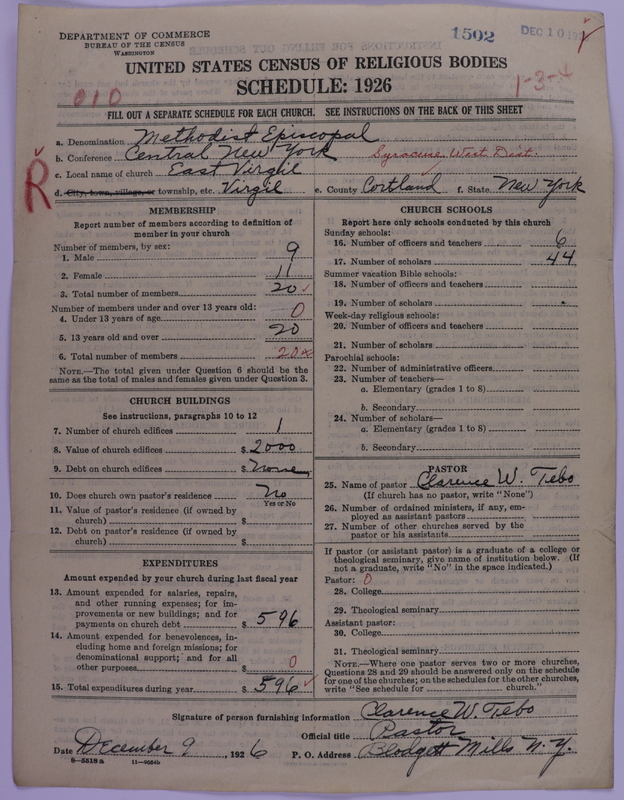 DEPARTMENT OF COMMERCE
BUREAU OF THE CENSUS
WASHINGTON
1502
DEC 10 192
UNITED STATES CENSUS OF RELIGIOUS BODIES
SCHEDULE: 1926
1-3-4
010
FILL OUT A SEPARATE SCHEDULE FOR EACH CHURCH. SEE INSTRUCTIONS ON THE BACK OF THIS SHEET
a. Denomination Methodist Episcopal
b. Conference Central New York Syracuse, West Dist.
c. Local name of church East Virgil
R
d. City, town, village, or township, etc. Virgil e. County Cortland f. State New York
MEMBERSHIP
Report number of members according to definition of
member in your church
Number of members, by sex:
1. Male 9
2. Female 11
3. Total number of members 20
Number of members under and over 13 years old:
4. Under 13 years of age 0
5. 13 years old and over 20
6. Total number of members 20
NOTE.—The total given under Question 6 should be
the same as the total of males and females given under Question 3.
CHURCH BUILDINGS
See instructions, paragraphs 10 to 12
7. Number of church edifices 1
8. Value of church edifices $ 2000
9. Debt on church edifices $ None
10. Does church own pastor's residence No
Yes or No
11. Value of pastor's residence (if owned by
church) $
12. Debt on pastor's residence (if owned by
church) $
EXPENDITURES
Amount expended by your church during last fiscal year
13. Amount expended for salaries, repairs,
and other running expenses; for im-
provements or new buildings; and for
payments on church debt $ 596
14. Amount expended for benevolences, in-
cluding home and foreign missions; for
denominational support; and for all
other purposes $ 0
15. Total expenditures during year $ 596
CHURCH SCHOOLS
Report here only schools conducted by this church
Sunday schools:
16. Number of officers and teachers 6
17. Number of scholars 44
Summer vacation Bible schools:
18. Number of officers and teachers
19. Number of scholars
Week-day religious schools:
20. Number of officers and teachers
21. Number of scholars
Parochial schools:
22. Number of administrative officers
23. Number of teachers—
a. Elementary (grades 1 to 8)
b. Secondary
24. Number of scholars—
a. Elementary (grades 1 to 8)
b. Secondary
PASTOR
25. Name of pastor Clarence W. Tebo
(If church has no pastor, write "None")
26. Number of ordained ministers, if any, em-
ployed as assistant pastors
27. Number of other churches served by the
pastor or his assistants
If pastor (or assistant pastor) is a graduate of a college or
theological seminary, give name of institution below. (If
not a graduate, write "No" in the space indicated.)
Pastor: 0
28. College
29. Theological seminary
Assistant pastor:
30. College
31. Theological seminary
NOTE.—Where one pastor serves two or more churches,
Questions 28 and 29 should be answered only on the schedule
for one of the churches; on the schedules for the other churches,
write "See schedule for church."
Signature of person furnishing information Clarence W. Tebo
Official title Pastor
Date December 9, 1926 P. O. Address Blodgett Mills N.Y.
8—5518 a 11—9054b